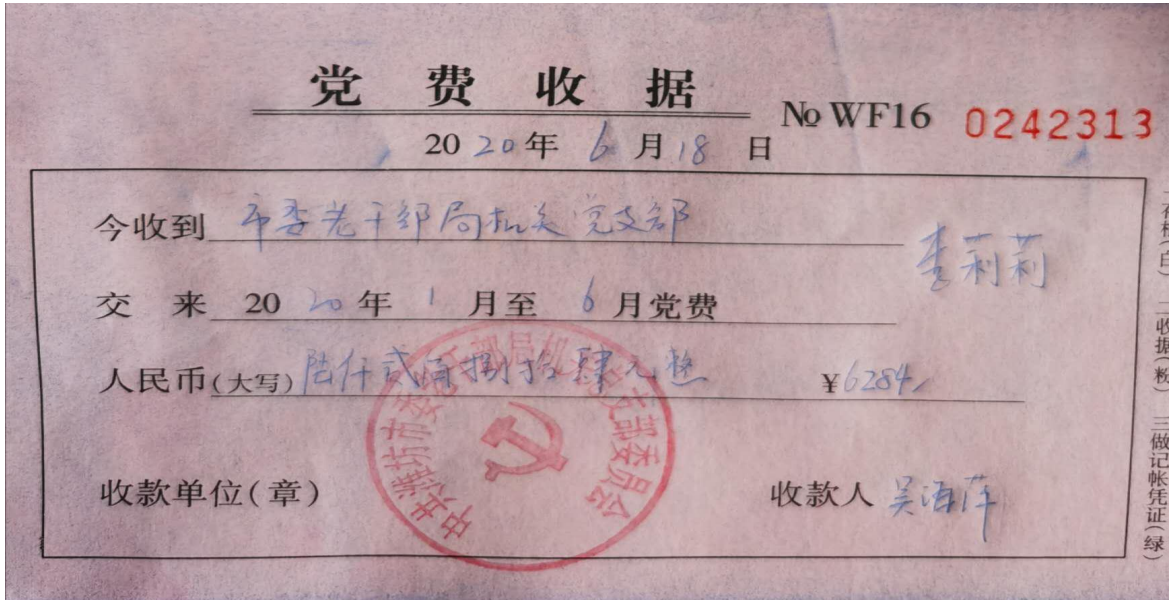 党费收据
№WF16 0242313
2020年6月18日
今收到 市委老干部局机关党支部 李莉莉
交来 2020年1月至6月党费
人民币(大写) 陆仟贰百捌拾肆元整 ¥6284/
收款单位(章) 收款人 吴海萍
中共潍坊市委老干部局机关党支部委员会
二收据(粉) 三做记帐凭证(绿)